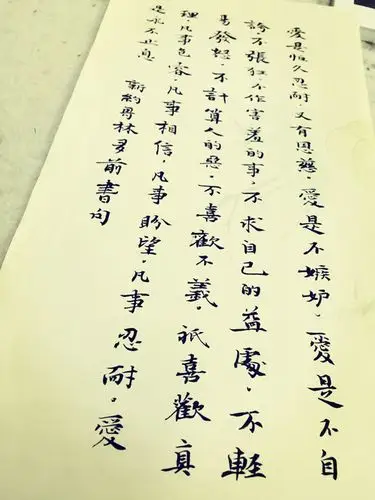 愛是恒久忍耐,又有恩慈。愛是不嫉妒。愛是不自
誇不張狂,不作害羞的事,不求自己的益處,不輕
易發怒,不計算人的惡,不喜歡不義,祇喜歡真
理,凡事包容,凡事相信,凡事盼望,凡事忍耐。愛
是永不止息
新約哥林多前書句